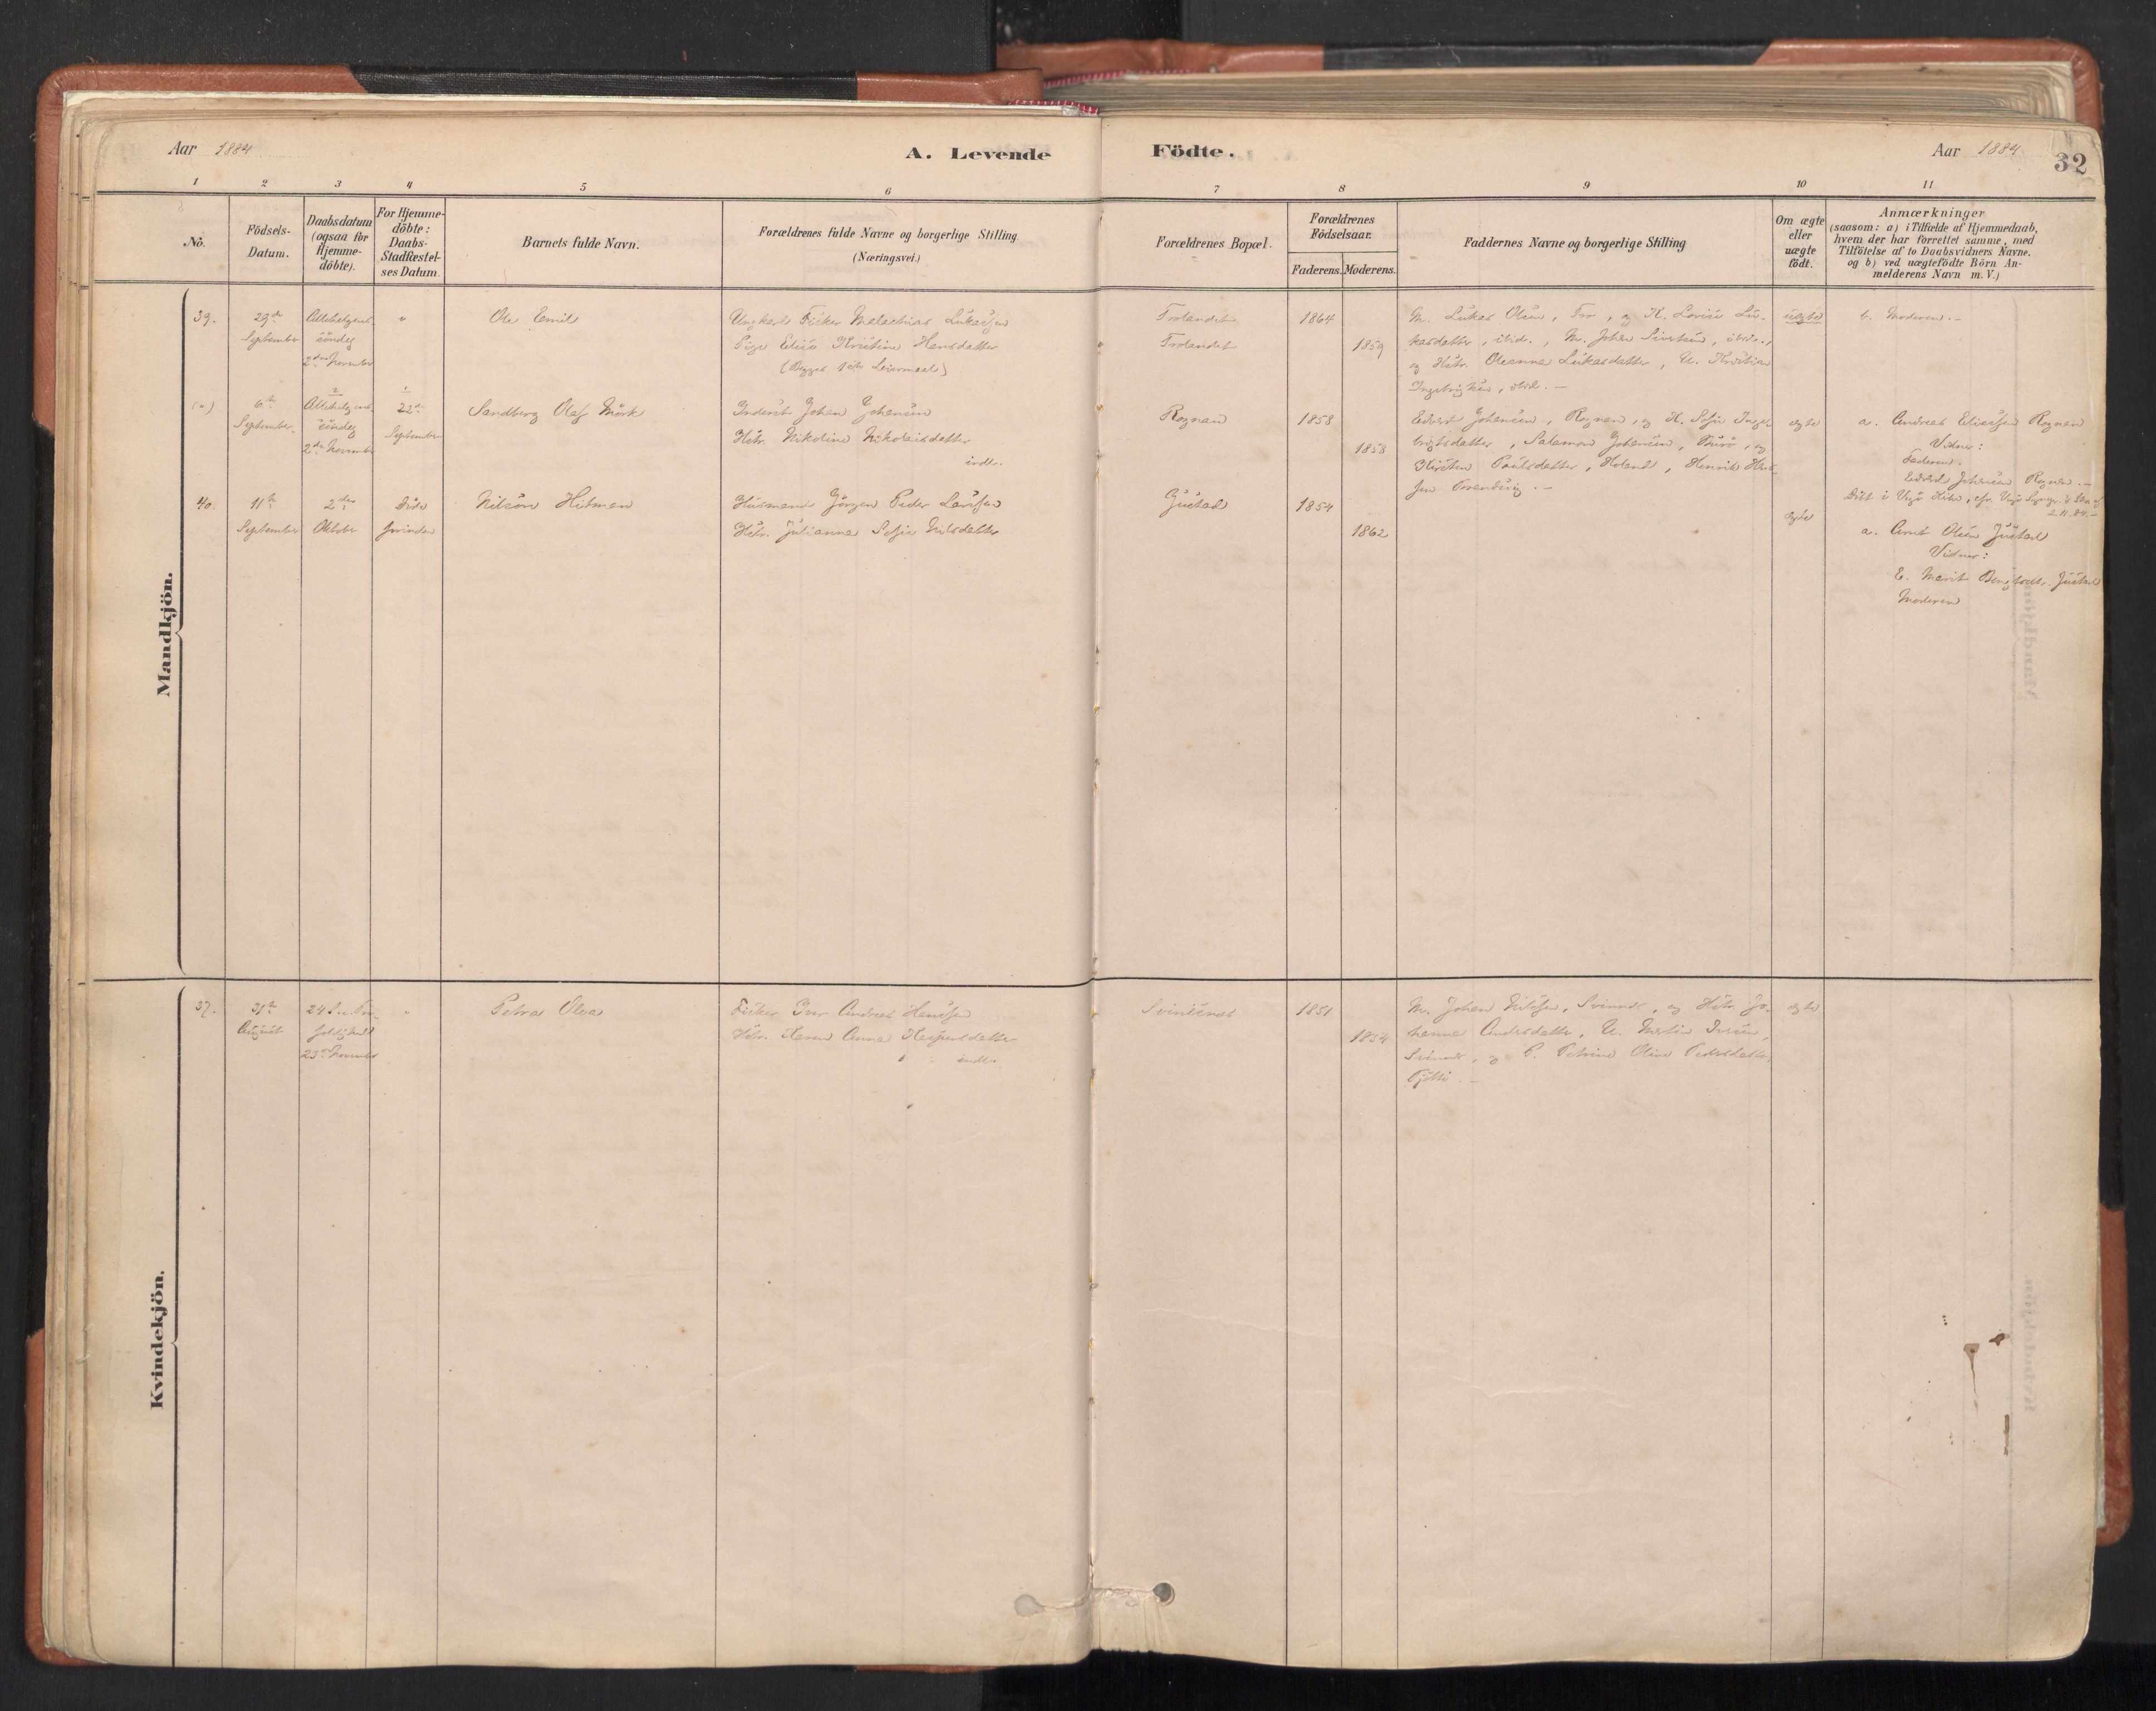 Aar 1884
A. Levende
Födte.
Aar 1884
32
1 2 3 4 5 6 7 8 9 10 11
No.
Födsels-
Datum.
Daabsdatum
(ogsaa for
Hjemme-
döbte).
For Hjemme-
döbte:
Daabs-
Stadfæstel-
ses Datum.
Barnets fulde Navn.
Forældrenes fulde Navne og borgerlige Stilling
(Næringsvei.)
Forældrenes Bopæl.
Forældrenes
Födselsaar.
Faderens. Moderens.
Faddernes Navne og borgerlige Stilling
Om ægte
eller
uægte
födt.
Anmærkninger
(saasom: a) i Tilfælde af Hjemmedaab,
hvem der har forrettet samme, med
Tilföielse af to Daabsvidners Navne.
og b) ved uægtefödte Börn An-
melderens Navn m. V.)
Mandkjön.
39.
29de
September
Allehelgens
söndag
2den November
"
Ole Emil
Ungkarl Fisker Malachias Lukassen
Pige Elise Kristine Hansdatter
(Begges 1ste Leiermaal)
Trolandet
Trolandet
1864
1859
M. Lukas Olsen, Tro, og K. Lovise Lu-
kasdatter, ibid., M. Johan Sivertsen, ibid.,
og Hstr. Oleanna Lukasdatter, U. Kristian
Ingebrigtsen, ibid. —
uægte
b. Moderen. —
(-)
6te
September
Allehelgens
söndag
2den November
22de
September
Sandberg Olaf Mörk
Inderst Johan Johansen
Hstr. Nikoline Nikolaisdatter
indl.
Rognan
1858
1858
Edvard Johansen, Rognan, og K. Sofie Inge-
brigtsdatter, Salamon Johansen, og
Kirsten Paulsdatter, Holand, Henrik Han-
sen
ægte
a. Andreas Eliassen Rognan
Vidner:
Faderen.
Edvard Johansen Rognan. —
40.
11te
September
2den
Oktober
Döde
forinden
Nilson Hilman
Husmand Jörgen Peder Larssen
Hstr. Julianna Sofie Nilsdatter
Gjustad
1854
1862
ægte
2.11.84. —
a. Arnt Olsen Gjustad
Vidner:
E. Marit Gjustad
Moderen
Kvindekjön.
37.
31te
August
24 S. e. Tre-
23de November
"
Petra Olea
Fisker Iver Andreas Hansen
Hstr. Karen Anna Kaspersdatter
indl.
1851
1854
M. Johan Nilssen, Svinnes, og Hstr. Jo-
hanna Andersdatter, U. Martin
Svinnes, og P. Petrine Oline Pedersdatter,
ægte